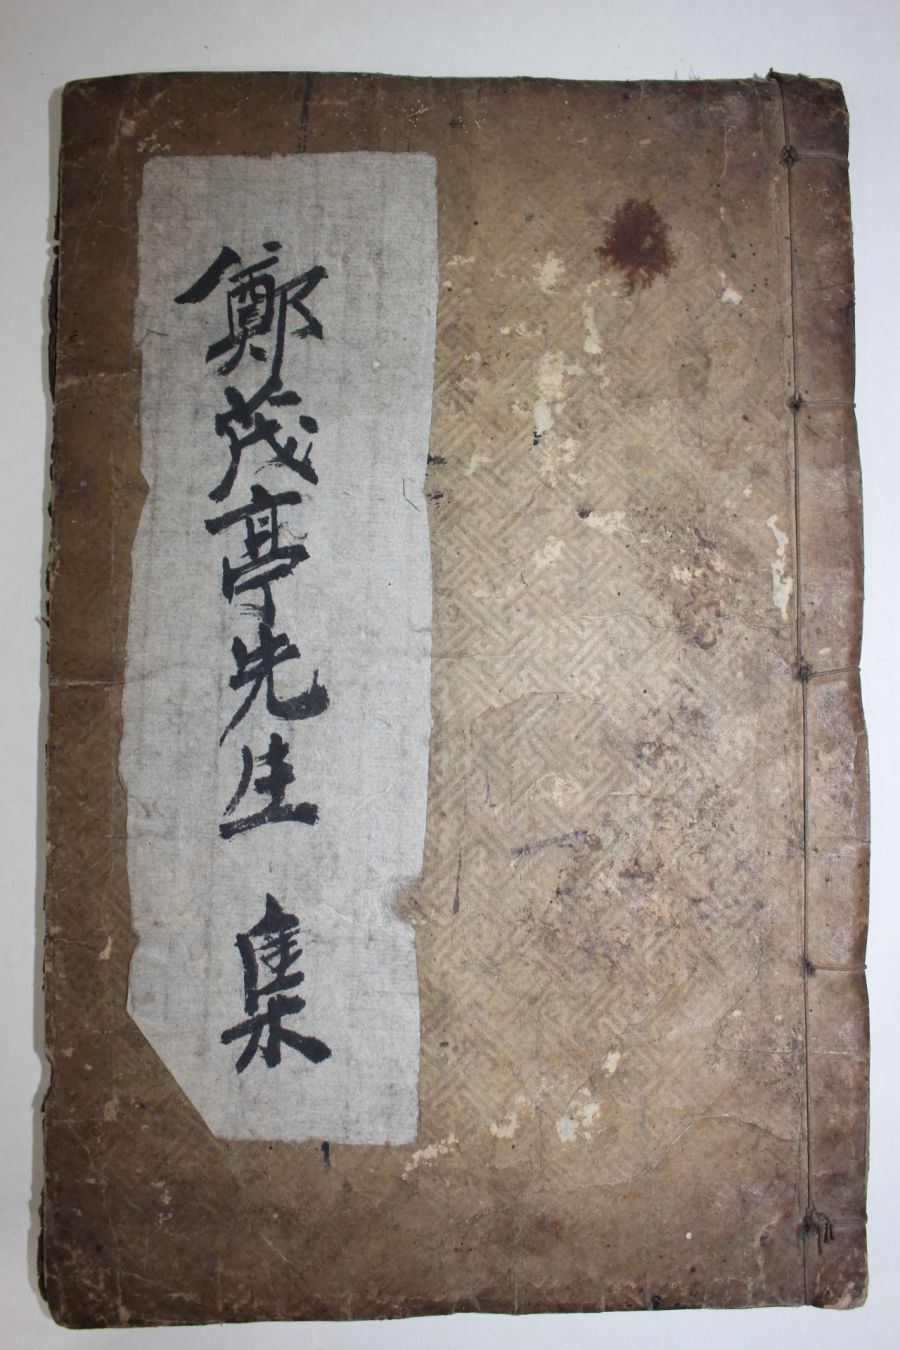 鄭茂亭先生 集